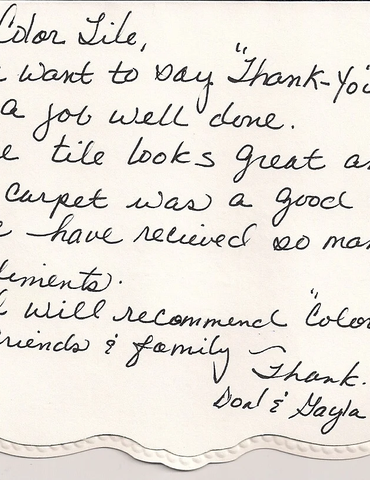 Color Tile,
want to say "Thank-You"
a job well done.
e tile looks great an
carpet was a good
e have recieved so man
liments.
I will recommend "Color
friends & family ~
Thank.
Don & Gayla